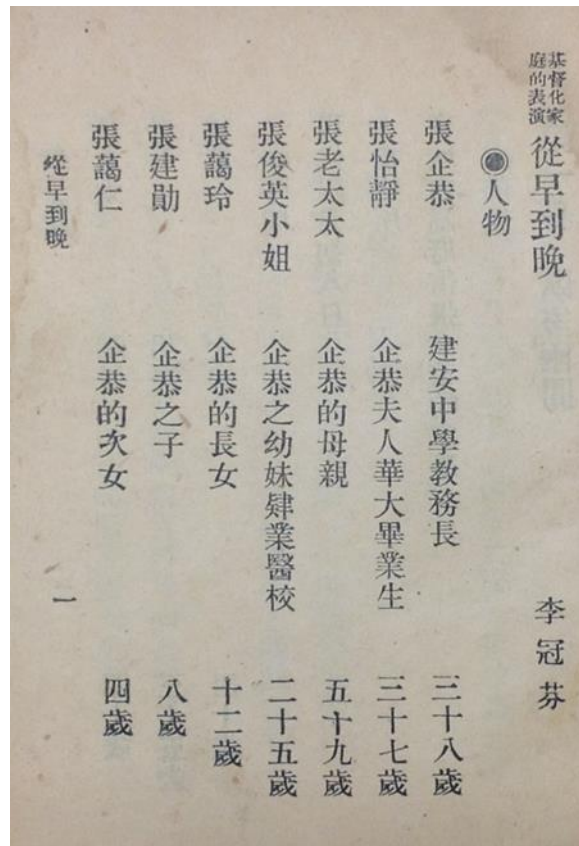 基督化家
庭的表演
從早到晚 李冠芬
●人物
張企恭 建安中學教務長 三十八歲
張怡靜 企恭夫人華大畢業生 三十七歲
張老太太 企恭的母親 五十九歲
張俊英小姐 企恭之幼妹肄業醫校 二十五歲
張藹玲 企恭的長女 十二歲
張建勛 企恭之子 八歲
張藹仁 企恭的次女 四歲
從早到晚 一